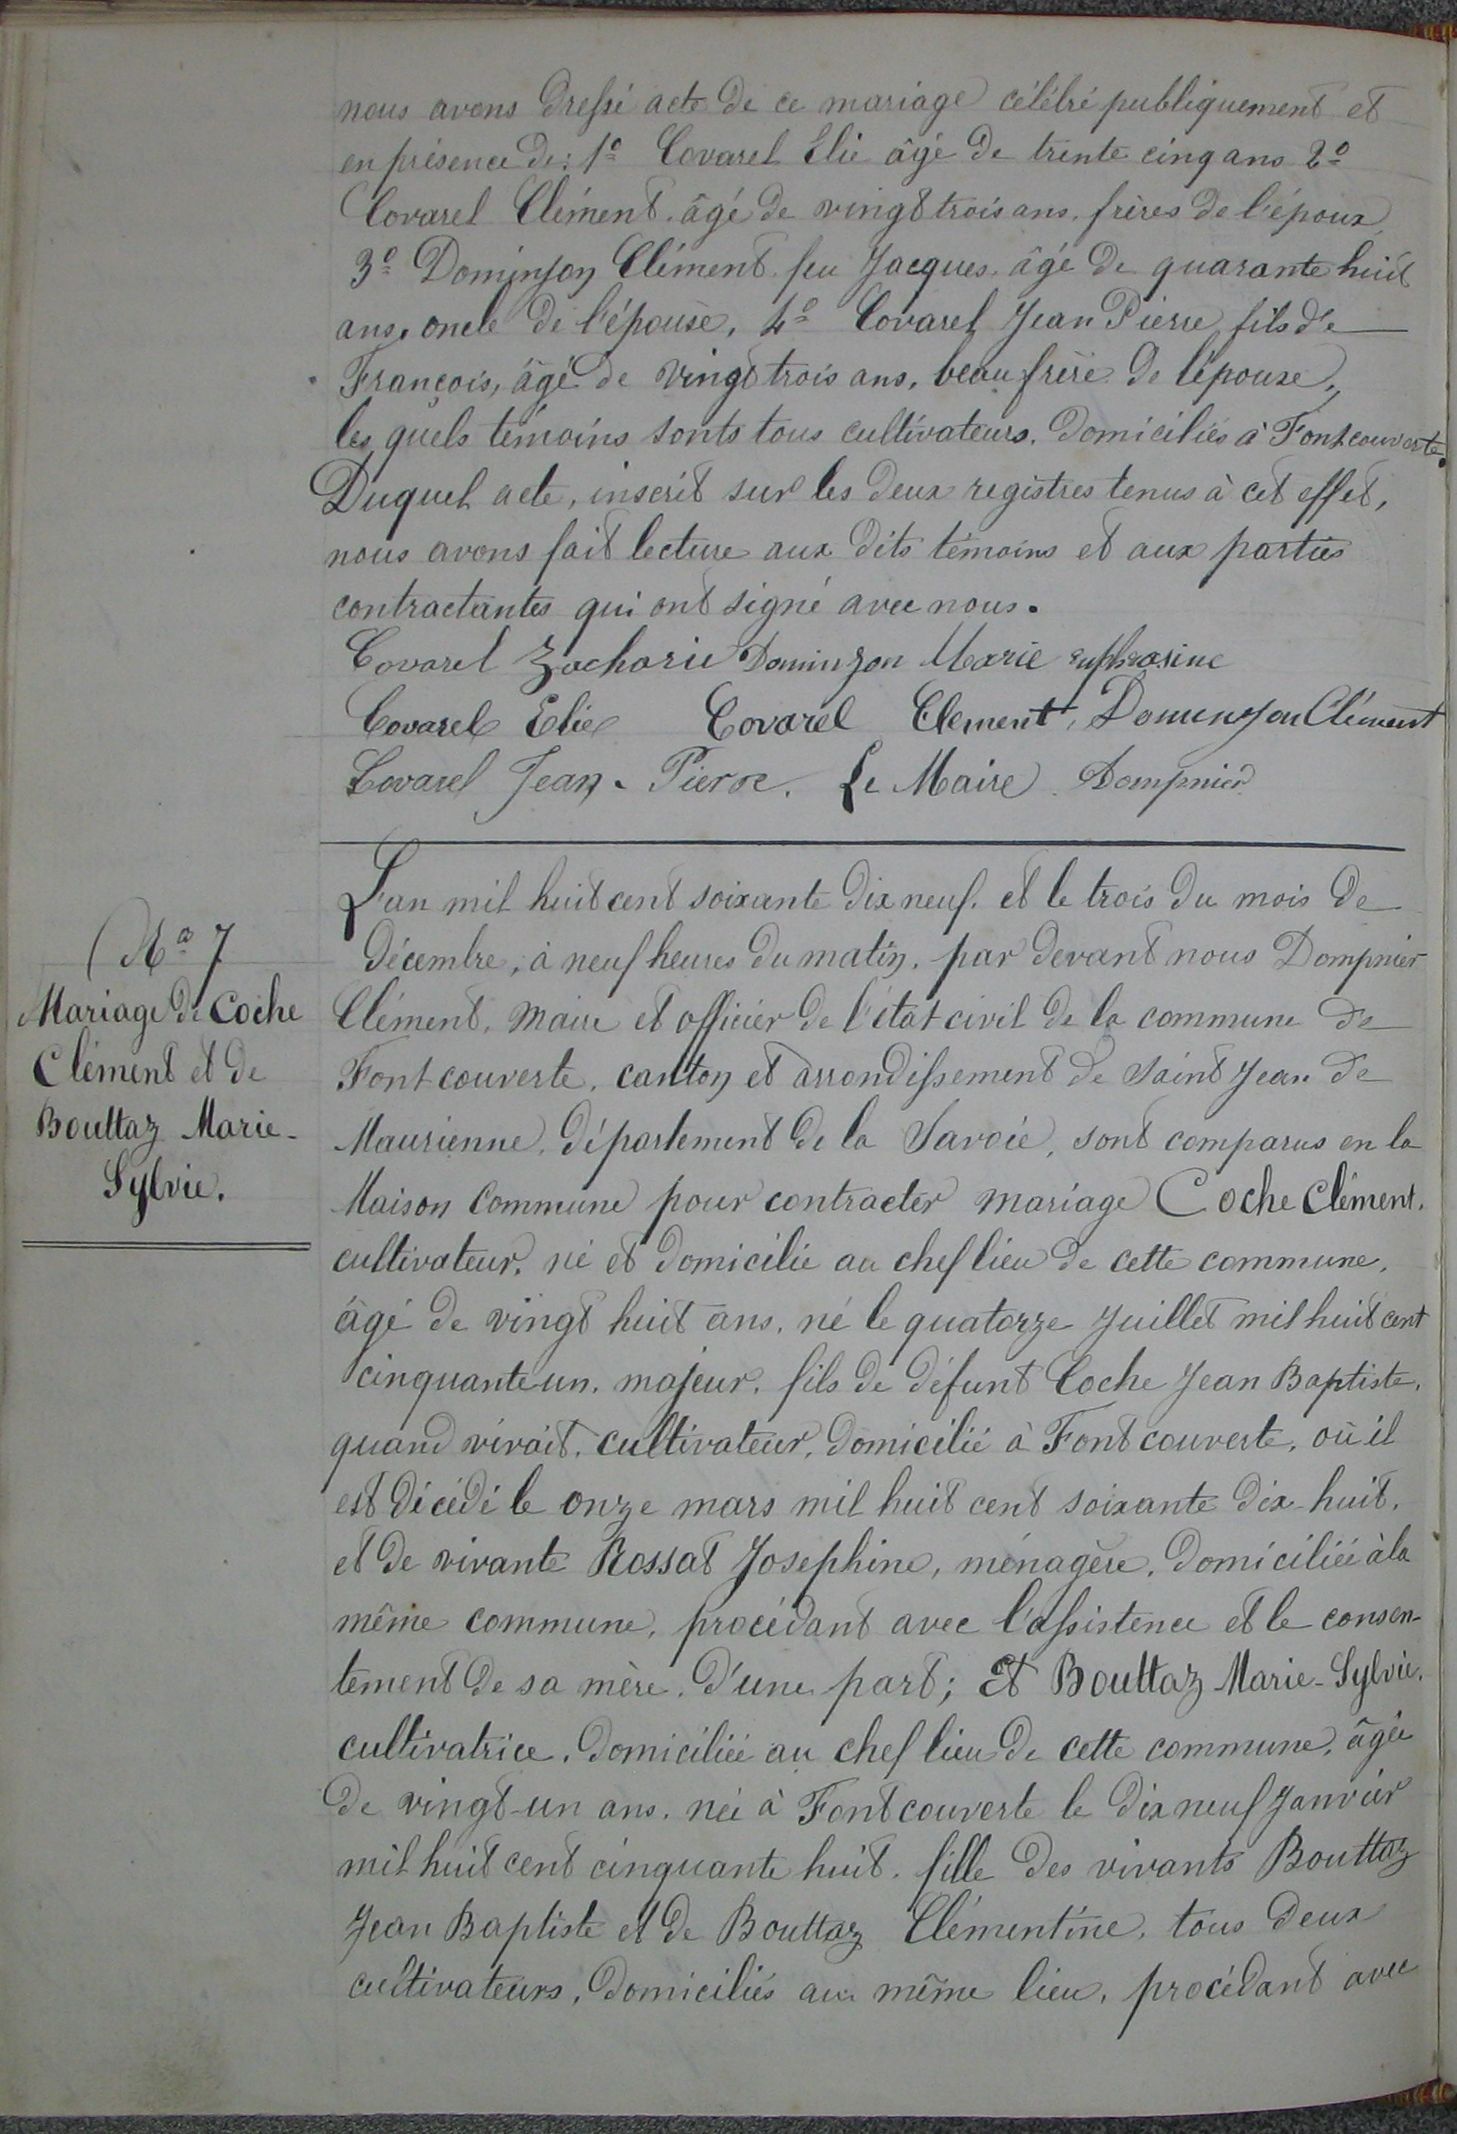 nous avons dressé acte de ce mariage célébré publiquement et
en présence de : 1º Covarel Elie âgé de trente cinq ans 2º
Covarel Clément. âgé de vingt trois ans, frères de l'époux,
3º Dominjon Clément. feu Jacques. âgé de quarante huit
ans, oncle de l'épouse, 4º Covarel Jean Pierre fils de
François, âgé de vingt trois ans, beau frère de l'épouse,
les quels témoins sonts tous cultivateurs. domiciliés à Fontcouverte.
Duquel acte, inscrit sur les deux registres tenus à cet effet,
nous avons fait lecture aux dits témoins et aux parties
contractantes qui ont signé avec nous.
Covarel Zacharie Dominjon Marie euphrasine
Covarel Elie Covarel Clement, Dominjon Clément
Covarel Jean-Pierre. Le Maire Dompnier
Nº 7
Mariage de Coche
Clément et de
Bouttaz Marie-
Sylvie.
L'an mil huit cent soixante dix neuf. et le trois du mois de
décembre, à neuf heures du matin, par devant nous Dompnier
Clément, Maire et officier de l'état civil de la commune de
Fontcouverte, canton et arrondissement de Saint Jean de
Maurienne, département de la Savoie, sont comparus en la
Maison Commune pour contracter mariage Coche Clément.
cultivateur, né et domicilié au chef lieu de cette commune,
âgé de vingt huit ans, né le quatorze Juillet mil huit cent
cinquante un, majeur, fils de défunt Coche Jean Baptiste,
quand vivait, cultivateur, domicilié à Fontcouverte, où il
est décédé le onze mars mil huit cent soixante dix-huit,
et de vivante Rossat Josephine, ménagère, domiciliée à la
même commune, procédant avec l'assistence et le consen-
tement de sa mère, d'une part; Et Bouttaz Marie-Sylvie,
cultivatrice, domiciliée au chef lieu de cette commune, âgée
de vingt-un ans, née à Fontcouverte le dix neuf Janvier
mil huit cent cinquante huit, fille des vivants Bouttaz
Jean Baptiste et de Bouttaz Clémentine, tous deux
cultivateurs, domiciliés au même lieu, procédant avec